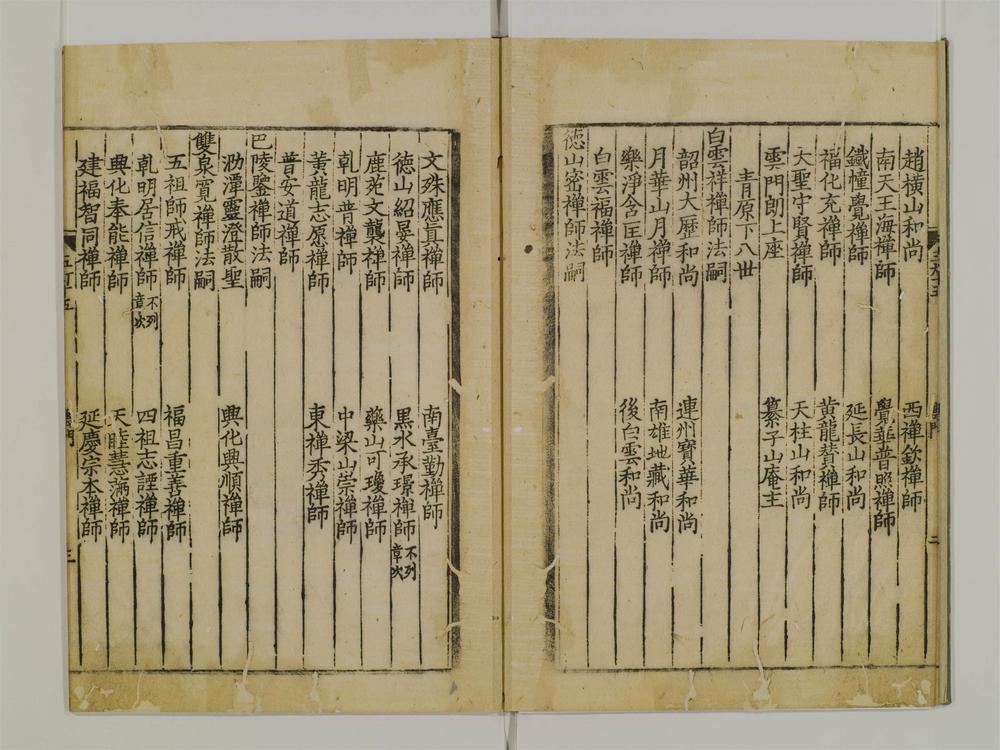 趙橫山和尚　西禪欽禪師
南天王海禪師　覺華普照禪師
鐵幢覺禪師　延長山和尚
福化充禪師　黃龍贊禪師
大聖守賢禪師　天柱山和尚
雲門朗上座　纂子山庵主
青原下八世
白雲祥禪師法嗣
韶州大歷和尚　連州寶華和尚
月華山月禪師　南雄地藏和尚
樂淨含匡禪師　後白雲和尚
白雲福禪師
德山密禪師法嗣
文殊應真禪師　南臺勤禪師
德山紹晏禪師　黑水承璟禪師 不列章次
鹿苑文襲禪師　藥山可瓊禪師
乹明普禪師　中梁山崇禪師
黃龍志愿禪師　東禪秀禪師
普安道禪師
巴陵鑒禪師法嗣
泐潭靈澄散聖　興化興順禪師
雙泉寬禪師法嗣
五祖師戒禪師　福昌重善禪師
乹明居信禪師 不列章次　四祖志諲禪師
興化奉能禪師　天睦慧滿禪師
建福智同禪師　延慶宗本禪師
三